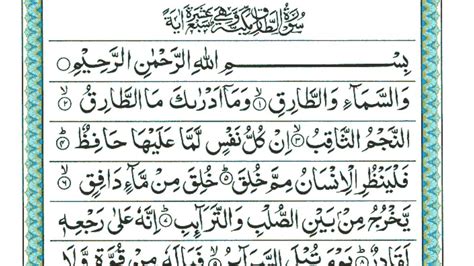 سُوْرَةُ الطَّارِقِ مَكِّيَّةٌ وَّهِيَ سَبْعَ عَشَرَةَ اٰيَةً
بِسْمِ اللهِ الرَّحْمٰنِ الرَّحِيْمِ
وَالسَّمَآءِ وَالطَّارِقِ ۙ﴿۱﴾ وَمَآ اَدْرٰىكَ مَا الطَّارِقُ ۙ﴿۲﴾
النَّجْمُ الثَّاقِبُ ۙ﴿۳﴾ اِنْ كُلُّ نَفْسٍ لَّمَّا عَلَيْهَا حَافِظٌ ؕ﴿۴﴾
فَلْيَنْظُرِ الْاِنْسَانُ مِمَّ خُلِقَ ؕ﴿۵﴾ خُلِقَ مِنْ مَّآءٍ دَافِقٍ ۙ﴿۶﴾
يَّخْرُجُ مِنْۢ بَيْنِ الصُّلْبِ وَالتَّرَآئِبِ ؕ﴿۷﴾ اِنَّهٗ عَلٰى رَجْعِهٖ
لَقَادِرٌ ؕ﴿۸﴾ يَوْمَ تُبْلَى السَّرَآئِرُ ۙ﴿۹﴾ فَمَا لَهٗ مِنْ قُوَّةٍ وَّلَا